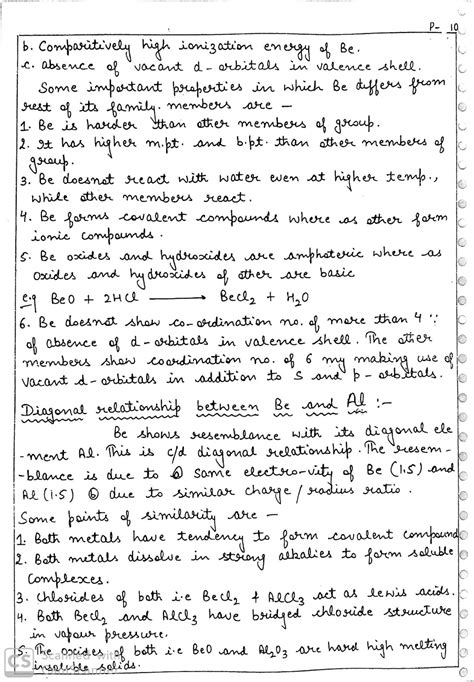 P- 10
b. Comparitively high ionization energy of Be.
c. absence of vacant d-orbitals in valence shell.
Some important properties in which Be differs from
rest of its family members are —
1. Be is harder than other members of group.
2. It has higher m.pt. and b.pt. than other members of
group.
3. Be doesnot react with water even at higher temp.,
while other members react.
4. Be forms covalent compounds where as other form
ionic compounds.
5. Be oxides and hydroxides are amphoteric where as
oxides and hydroxides of other are basic
e.g BeO + 2HCl ⟶ BeCl2 + H2O
6. Be doesnot show co-ordination no. of more than 4 ∵
of absence of d-orbitals in valence shell. The other
members show coordination no. of 6 my making use of
vacant d-orbitals in addition to S and p-orbitals.
Diagonal relationship between Be and Al :-
Be shows resemblance with its diagonal ele
-ment Al. This is c/d diagonal relationship. The resem-
-blance is due to ⓐ same electro-vity of Be (1.5) and
Al (1.5) ⓑ due to similar charge / radius ratio.
Some points of similarity are —
1. Both metals have tendency to form covalent compound
2. Both metals dissolve in strong alkalies to form soluble
Complexes.
3. Chlorides of both i.e BeCl2 & AlCl3 act as lewis acids.
4. Both BeCl2 and AlCl3 have bridged chloride structure
in vapour pressure.
5. The oxides of both i.e BeO and Al2O3 are hard high melting
insoluble solids.
CS